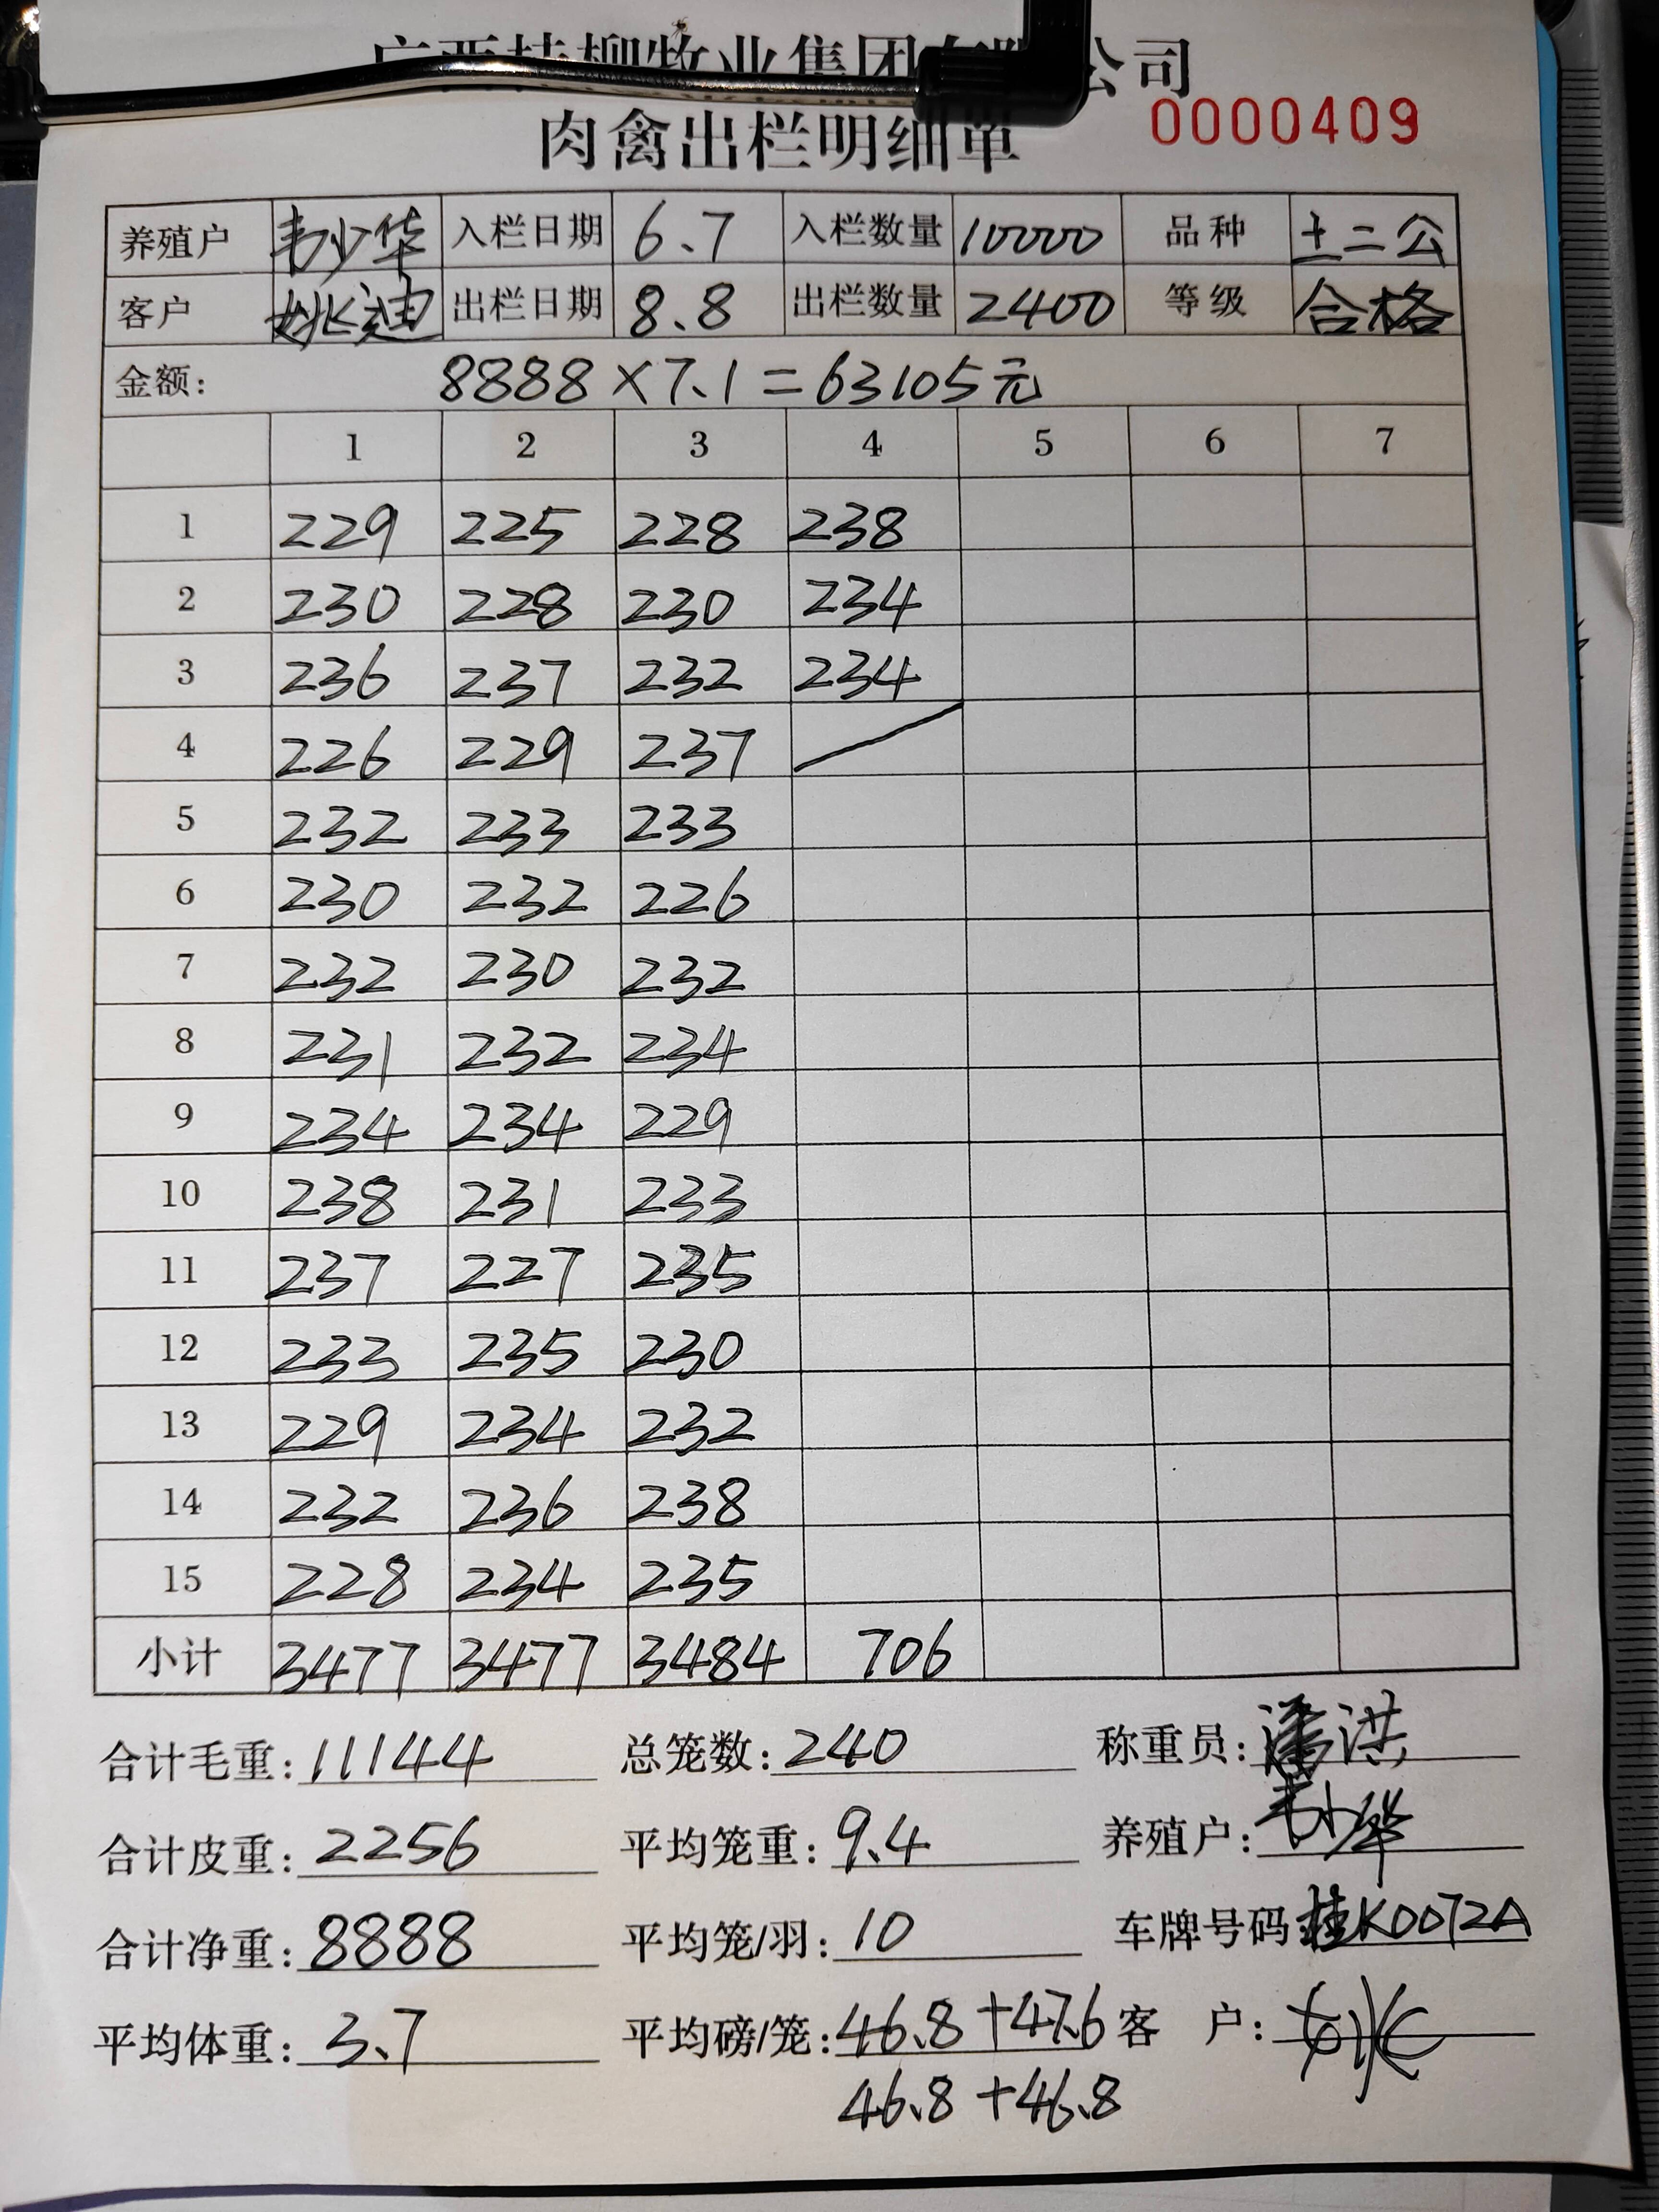 柳牧业集团 公司
肉禽出栏明细单 0000409
养殖户 韦少华 入栏日期 6.7 入栏数量 10000 品种 土二公
客户 姚迪 出栏日期 8.8 出栏数量 2400 等级 合格
金额: 8888×7.1=63105元
1 2 3 4 5 6 7
1 229 225 228 238
2 230 228 230 234
3 236 237 232 234
4 226 229 237
5 232 233 233
6 230 232 226
7 232 230 232
8 231 232 234
9 234 234 229
10 238 231 233
11 237 227 235
12 233 235 230
13 229 234 232
14 232 236 238
15 228 234 235
小计 3477 3477 3484 706
合计毛重: 11144 总笼数: 240 称重员: 潘洪
合计皮重: 2256 平均笼重: 9.4 养殖户: 韦少华
合计净重: 8888 平均笼/羽: 10 车牌号码 桂K0072A
平均体重: 3.7 平均磅/笼: 46.8+47.6 客 户:
46.8+46.8